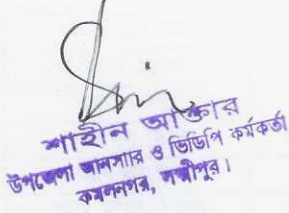 শাহীন আক্তার
উপজেলা আনসার ও ভিডিপি কর্মকর্তা
কমলনগর, লক্ষ্মীপুর।